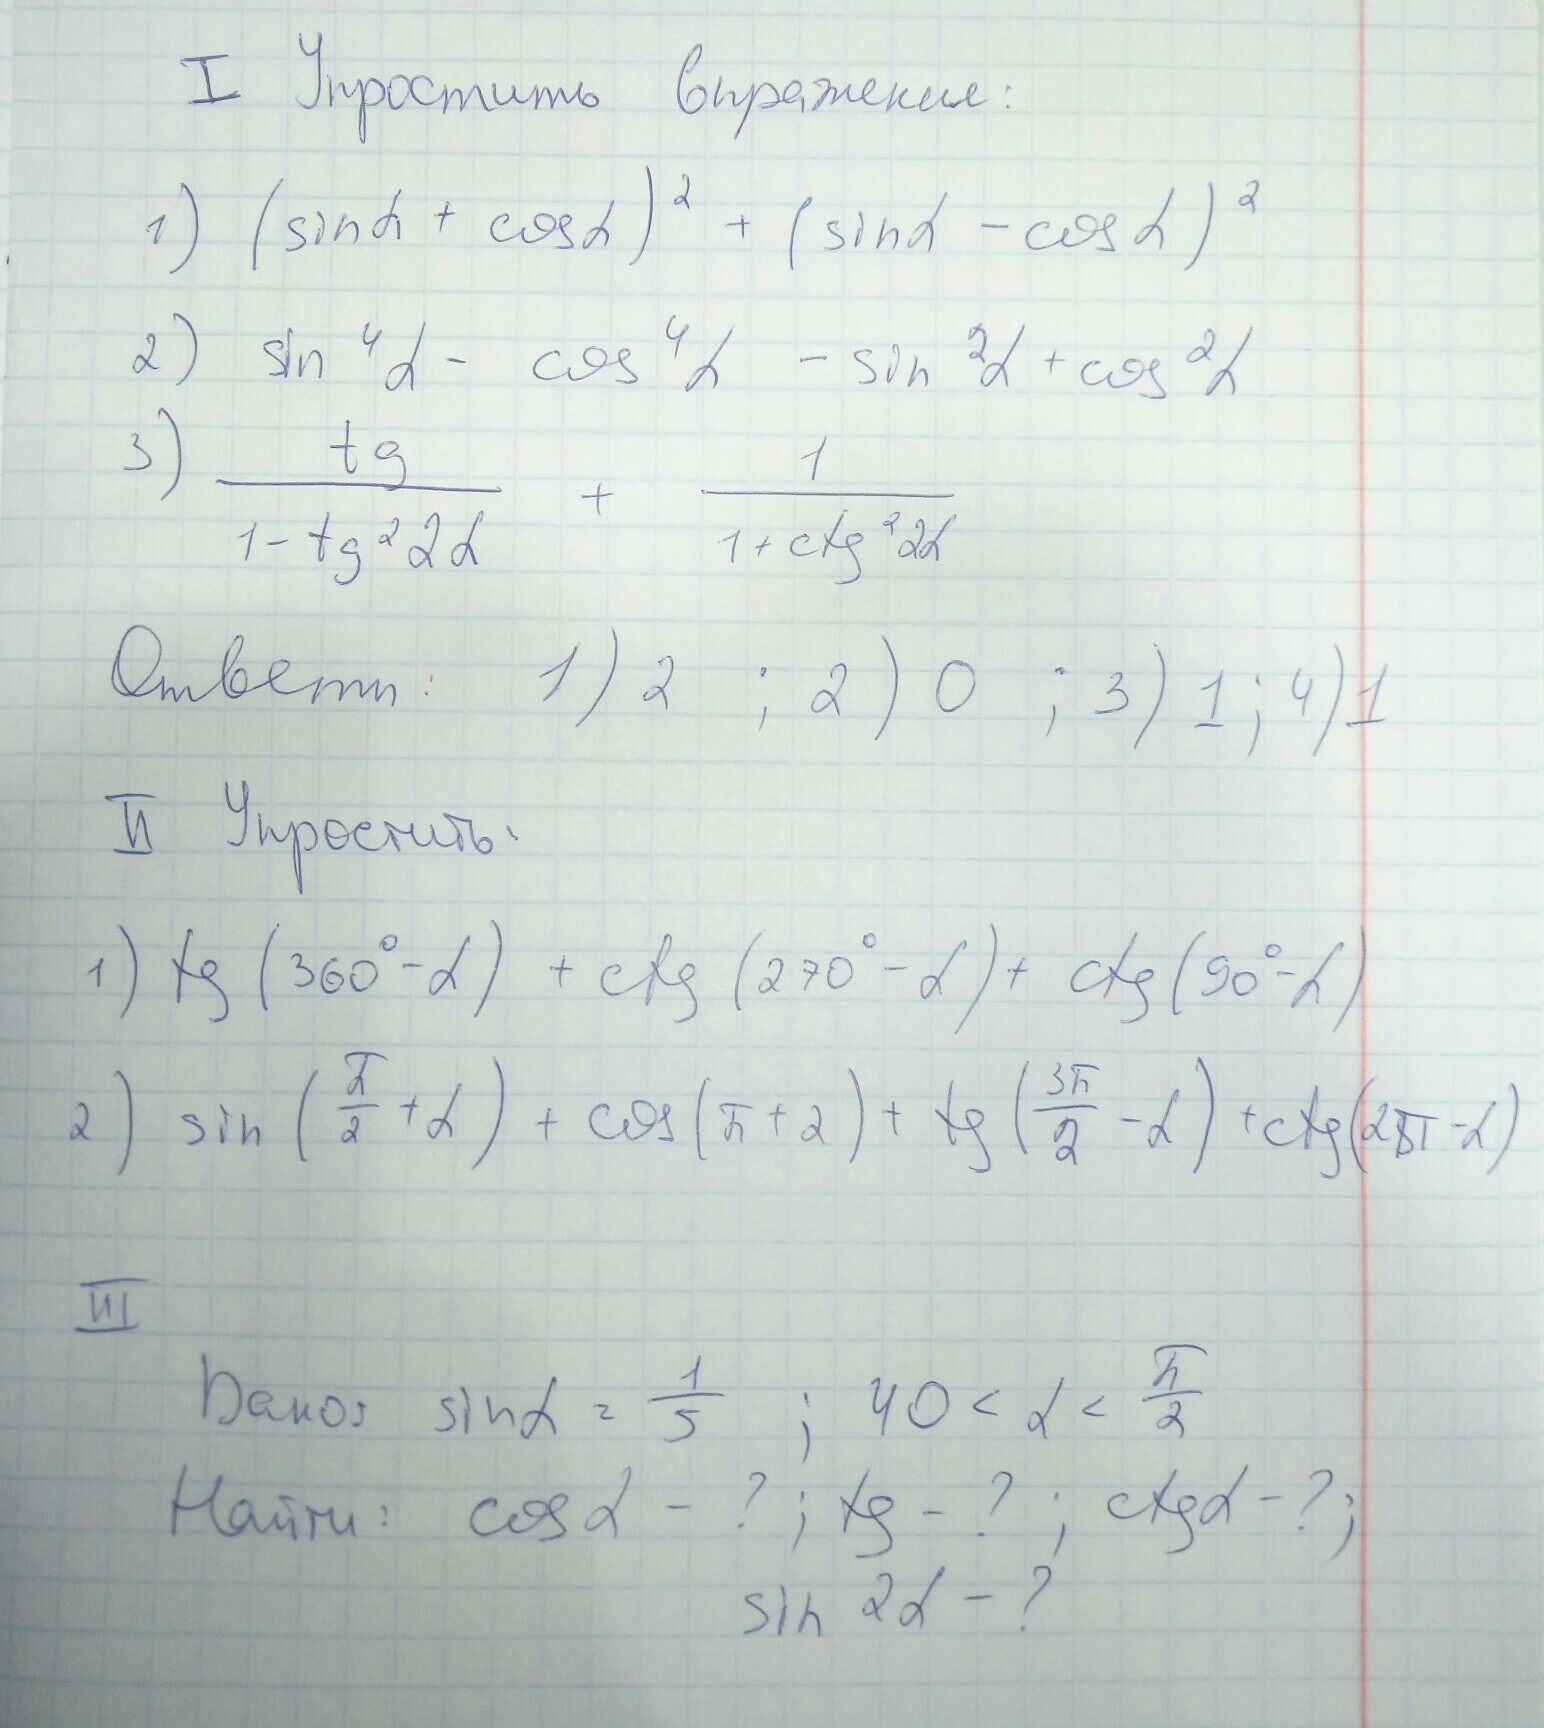 I Упростить выражения:
1) (sinα + cosα)² + (sinα - cosα)²
2) sin⁴α - cos⁴α - sin²α + cos²α
3) tg / (1 - tg²2α) + 1 / (1 + ctg²2α)
Ответы: 1) 2 ; 2) 0 ; 3) 1 ; 4) 1
II Упростить:
1) tg (360° - α) + ctg (270° - α) + ctg (90° - α)
2) sin (π/2 + α) + cos (π + 2) + tg (3π/2 - α) + ctg (2π - α)
III
Дано: sinα = 1/5 ; 40 < α < π/2
Найти: cosα - ? ; tg - ? ; ctgα - ? ;
sin 2α - ?